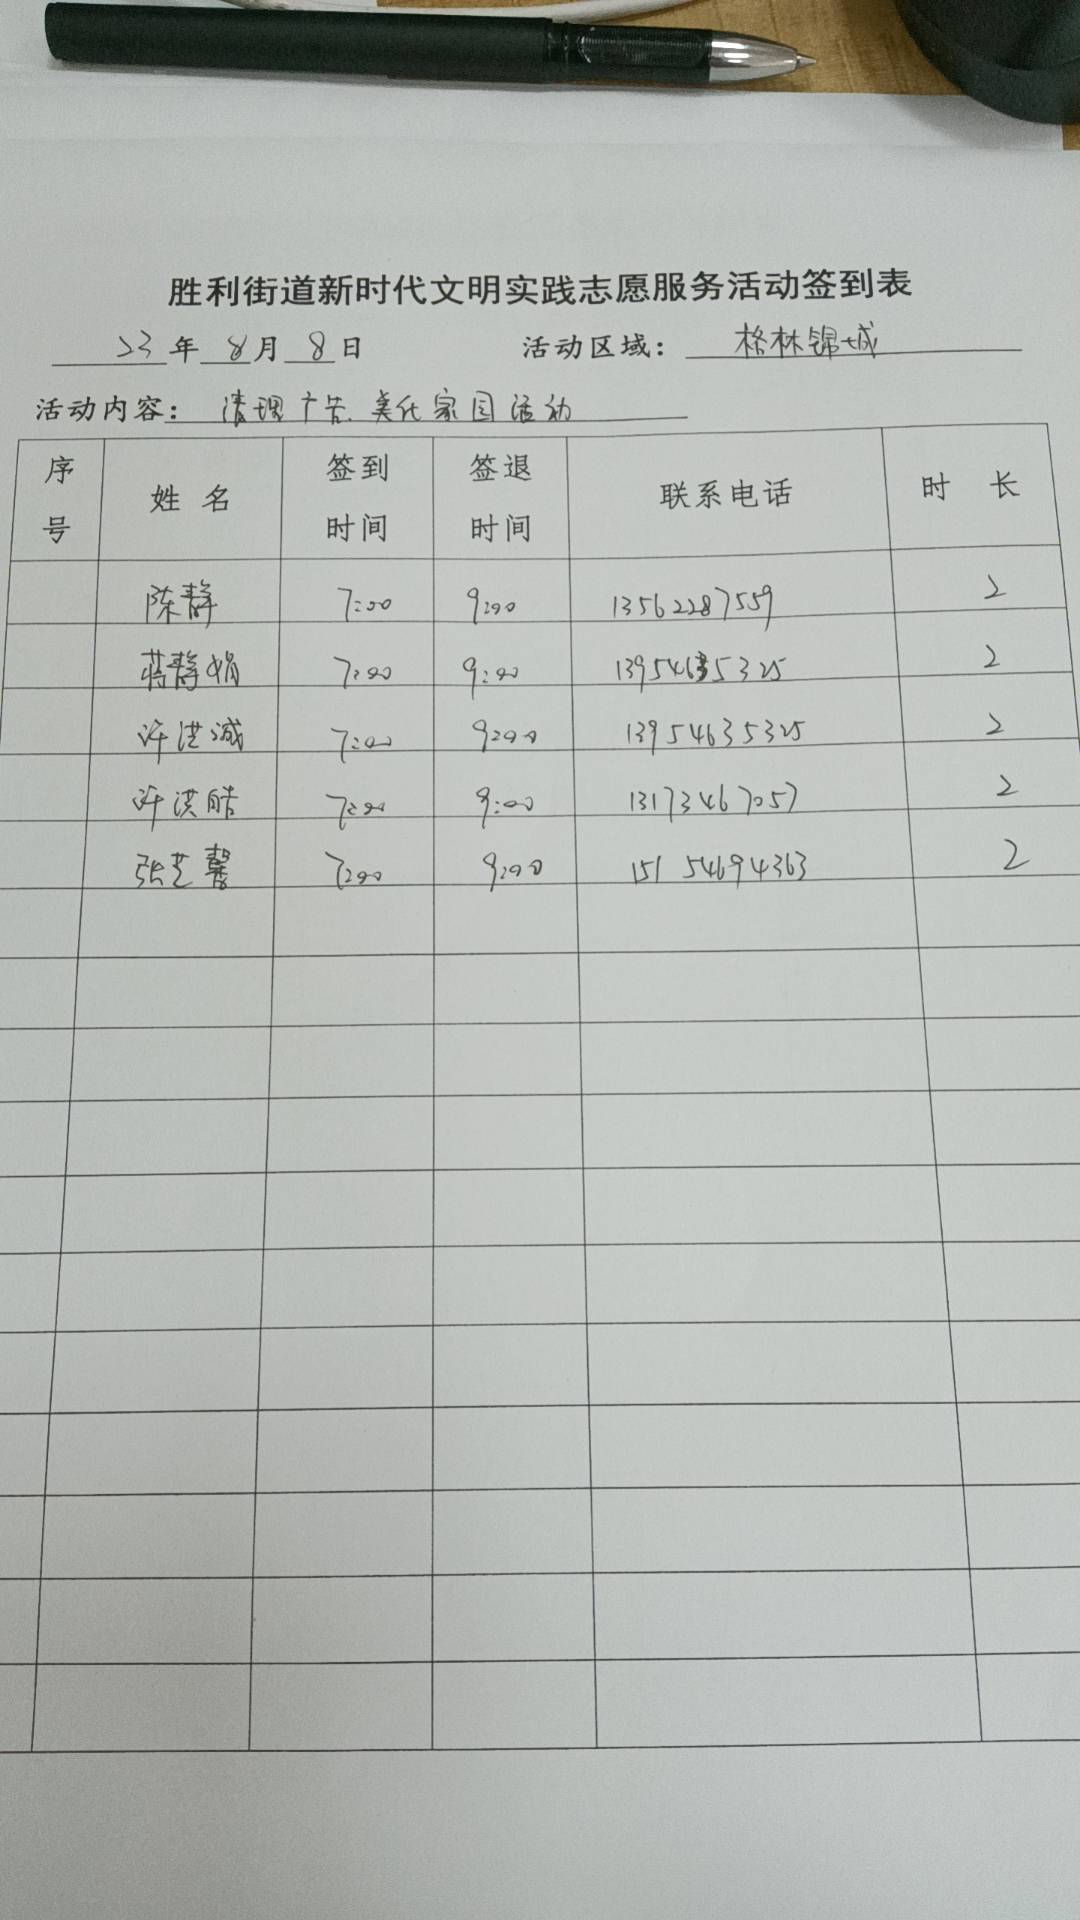 胜利街道新时代文明实践志愿服务活动签到表
23年8月8日 活动区域：格林锦城
活动内容：清理广告.美化家园活动
序号 姓名 签到时间 签退时间 联系电话 时长
陈静 7:00 9:00 13562287559 2
蒋静娟 7:00 9:00 13954635325 2
许洪诚 7:00 9:00 13954635325 2
许洪皓 7:00 9:00 13173467057 2
张艺馨 7:00 9:00 15154694363 2